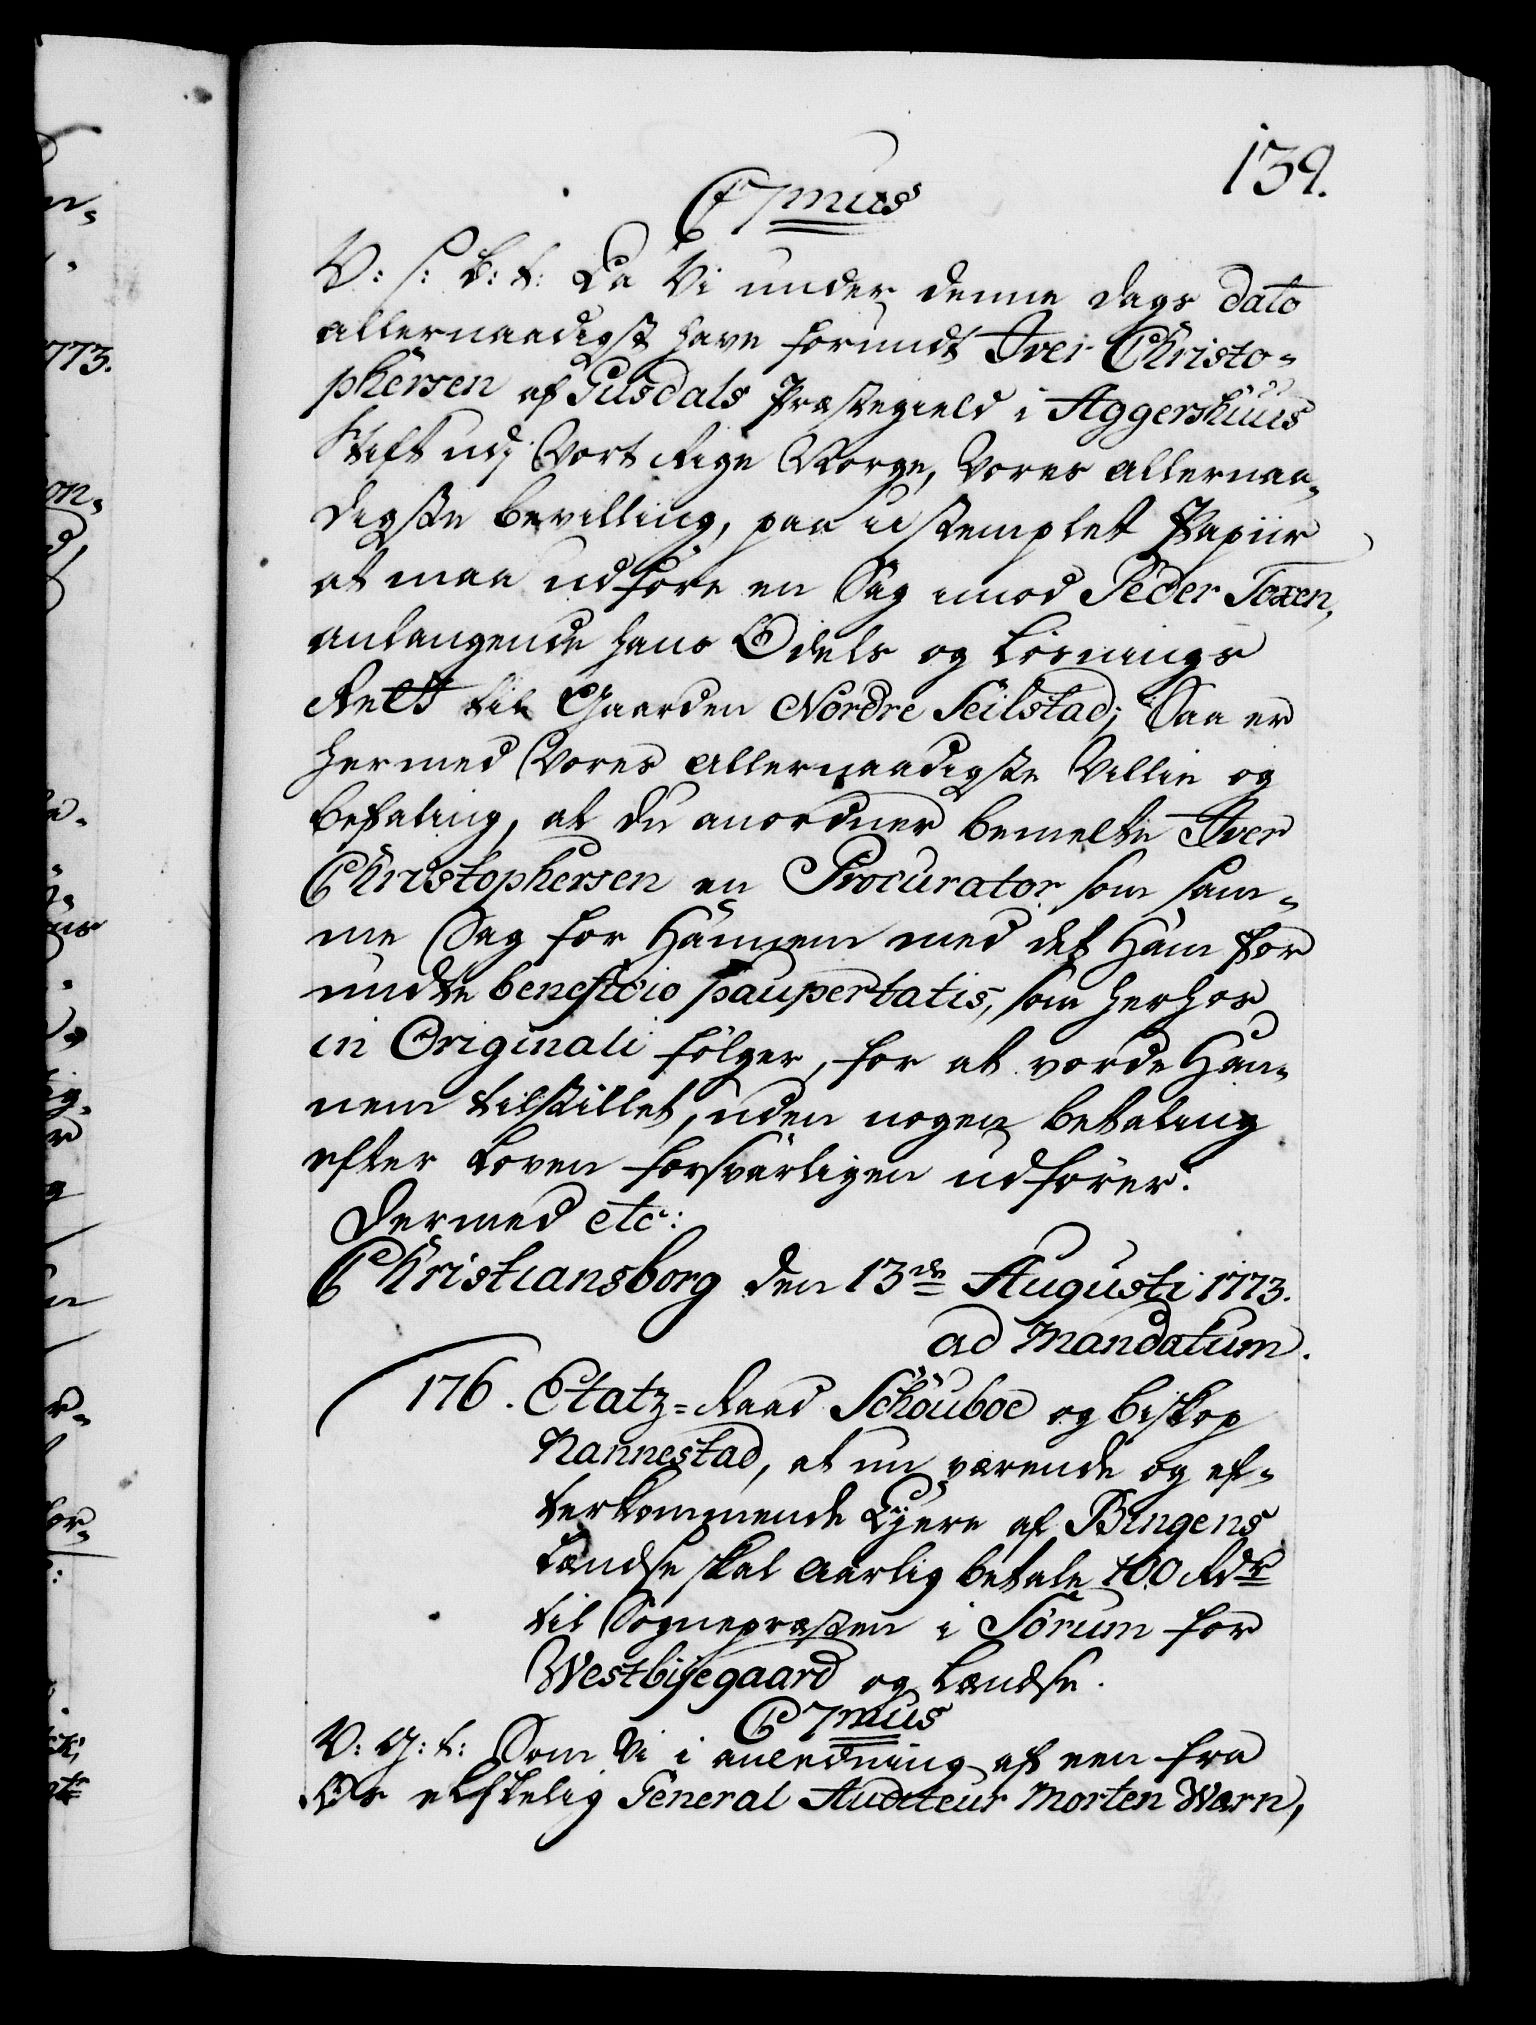 139.
C 7mus
V: s: B: t: Da Vi under denne dags dato
allernaadigst have forundt Iver Christo-
phersen af Gusdals Præstegield i Aggershuus
Stift udj Vort Rige Norge, Vores allernaa-
digste bevilling, paa ustemplet Papiir
at maa udføre en Sag imod Peder Toxen,
anlangende hans Odels og Løsnings
Rett til Gaarden Nordre Seilstad; Saa er
hermed Vores allernaadigste Villie og
befaling, at du anordner bemelte Iver
Christophersen en Procurator som sam-
me Sag for Hannem med det Ham for
undte beneficio paupertatis, som herhos
in Originali følger, for at vorde Han-
nem tilstillet, uden nogen betaling
efter Loven forsvarligen udfører.
Dermed etc:
Christiansborg den 13de Augusti 1773.
ad Mandatum.
176. Etatz-Raad Schouboe og biskop
Nannestad, at nu værende og ef-
terkommende Ejere af Bingens
Lændse skal aarlig betale 100 Rdr
til Sognepræsten i Sørum for
Westbyegaard og Lændse.
C 7mus
V: G: t: Som Vi i anledning af een fra
Os elskelig General Auditeur Morten Wærn,